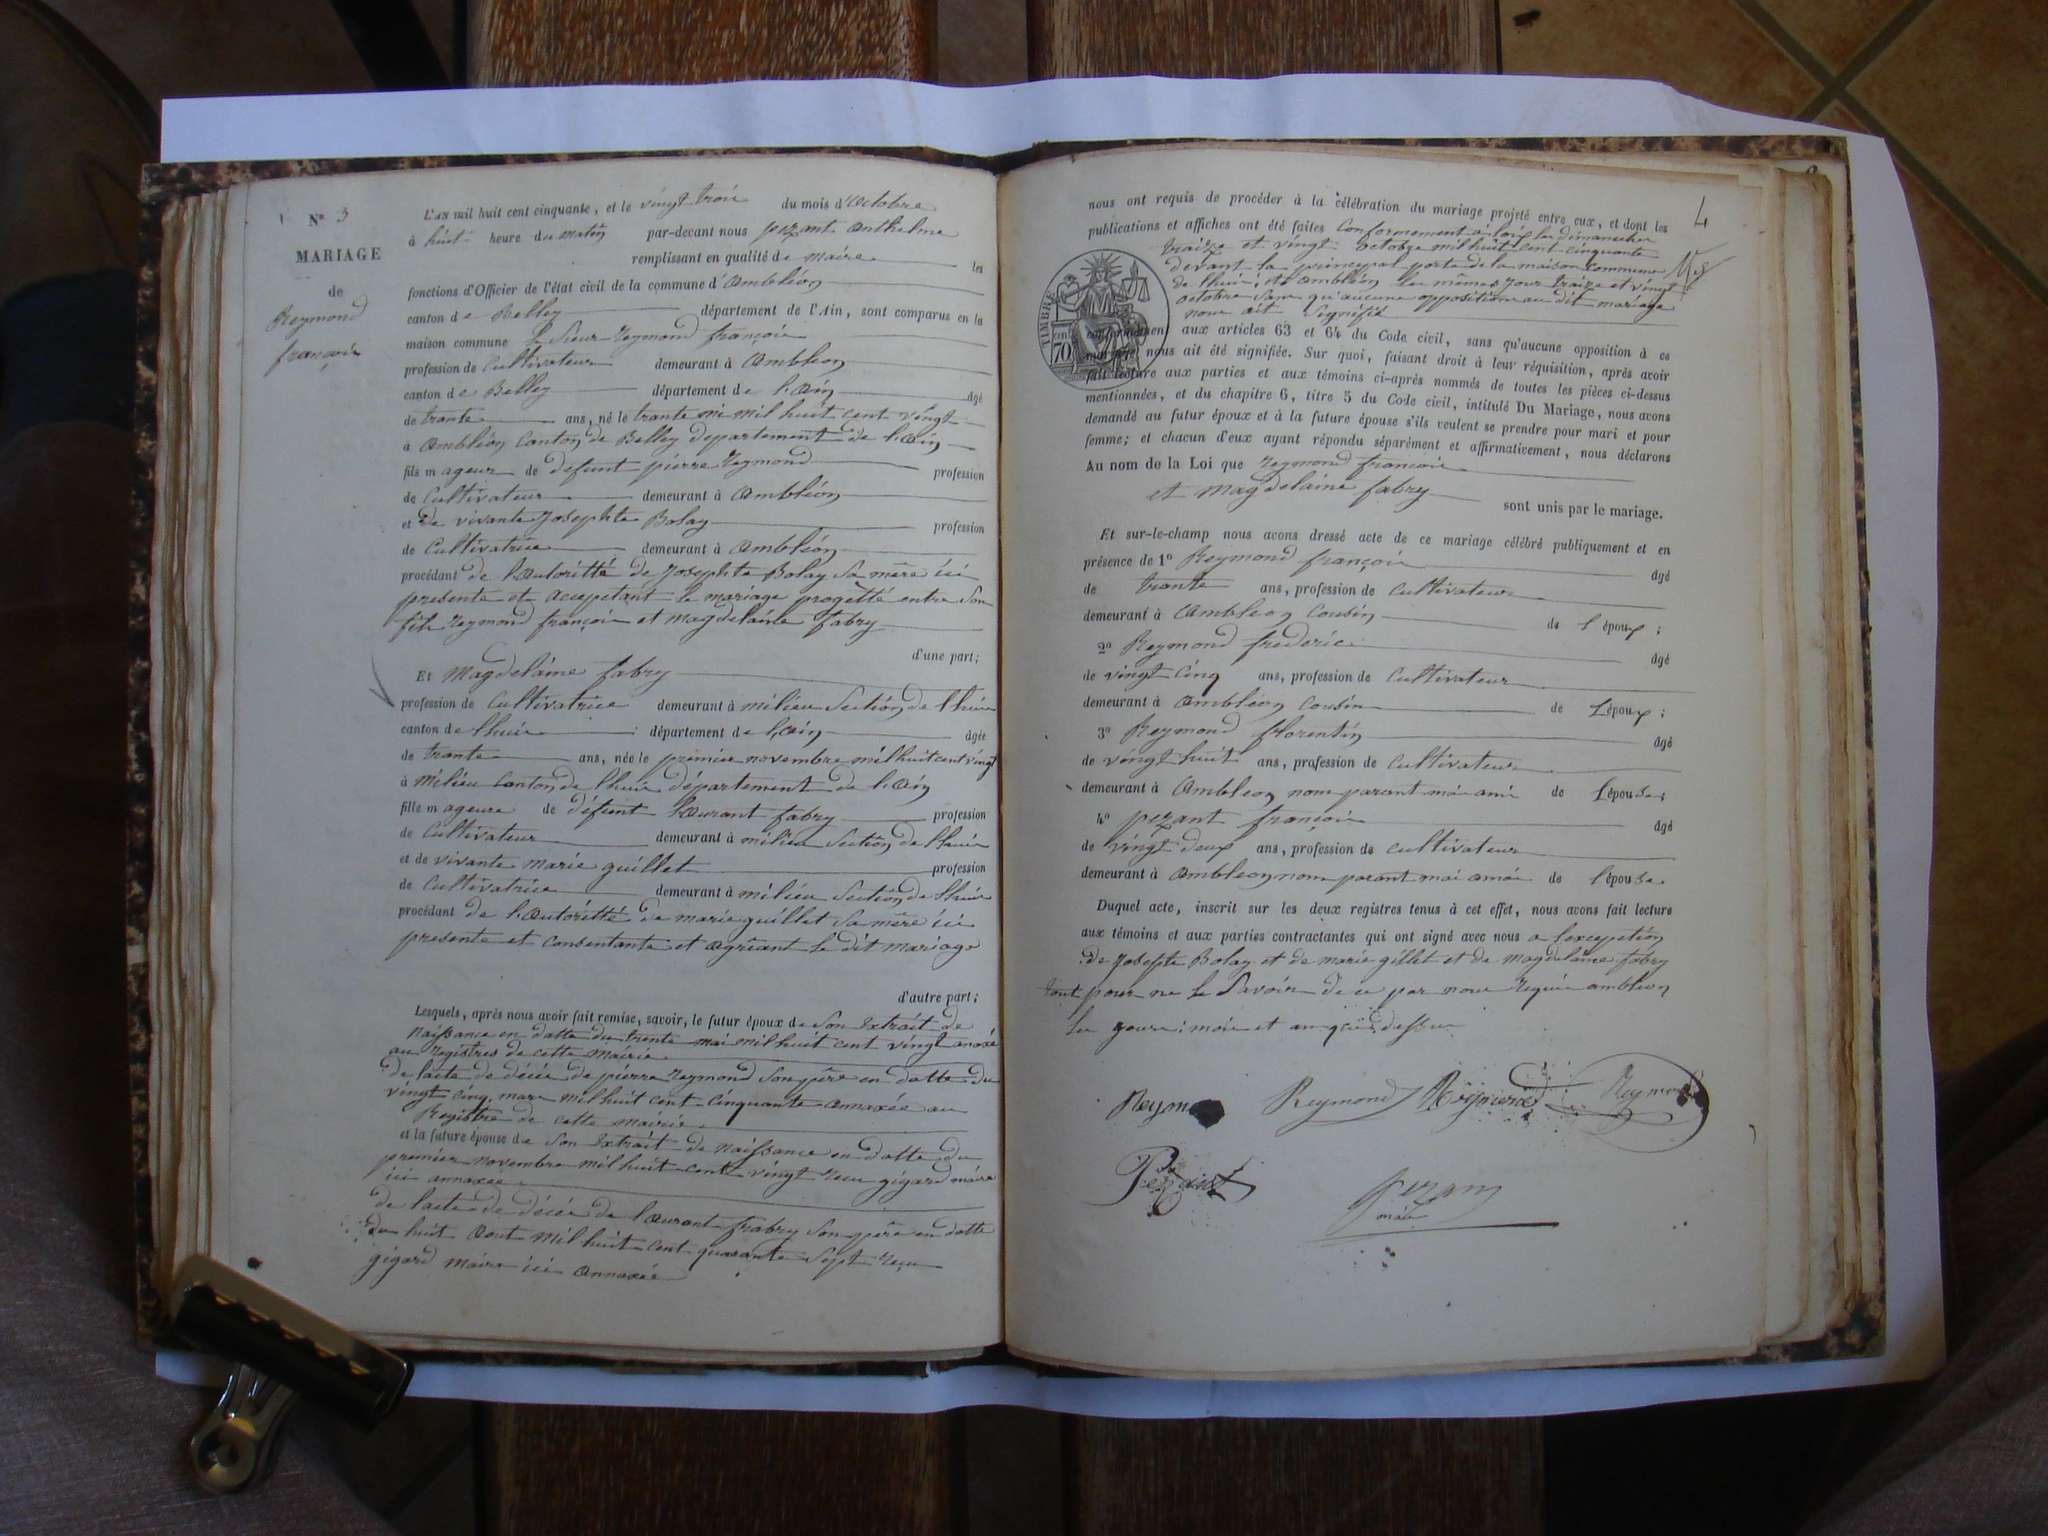 Nº 3
MARIAGE
de
Reymond
françois
L'AN mil huit cent cinquante, et le vingt trois du mois d'Octobre
à huit heure du matin par-devant nous pezant anthelme
remplissant en qualité de maire les
fonctions d'Officier de l'état civil de la commune d'Ambléon
canton de Belley département de l'Ain, sont comparus en la
maison commune le Sieur Reymond françois
profession de Cultivateur demeurant à Ambleon
canton de Belley département de l'ain âgé
de trante ans, né le trante mi mil huit cent vingt
a Ambléon Canton de Belley departement de l'ain
fils mageur de defunt pierre Reymond profession
de Cultivateur demeurant à Ambléon
et de vivante Josephte Bolay profession
de Cultivatrice demeurant à Ambléon
procédant de l'autoritté de Josephte Bolay Sa mère ici
presente et accepetant le mariage progetté entre Son
fils Reymond françois et Magdelaine fabry
d'une part;
Et Magdelaine fabry
profession de Cultivatrice demeurant à milieu Section de lhuis
canton de lhuis département de l'ain âgée
de trante ans, née le premier novembre mil huit cent vingt
à Milieu Canton de lhuis département de l'ain
fille mageure de défunt Laurant fabry profession
de Cultivateur demeurant à milieu Section de lhuis
et de vivante marie guillet profession
de Cultivatrice demeurant à milieu Section de lhuis
procédant de l'autoritté de marie guillet Sa mère ici
presente et consentante et agréant le dit mariage
d'autre part;
Lesquels, après nous avoir fait remise, savoir, le futur époux de Son Extrait de
naissance en datte du trente mai mil huit cent vingt anoxé
au registres de cette mairie
de lacte de décée de pierre Reymond Son père en datte du
vingt cinq mars mil huit cent cinquante annaxée au
Registre de cette mairie
et la future épouse de Son Extrait de naissance en datte du
premier novembre mil huit cent vingt recu gigard maire
ici annaxée
de lacte de décée de Laurant frabry Son père en datte
du huit Aout mil huit cent quarante Sept reçu
gigard maire ici annaxée
4
nous ont requis de procéder à la célébration du mariage projeté entre eux, et dont les
publications et affiches ont été faites Conformement a loix les dimanches
traize et vingt octobre mil huit cent cinquante
devant la principal porte de la maison commune
de lhuis, et Ambléon les mêmes jour traize et vingt
octobre Sans qu'aucune opposition au dit mariage
nous ait Signifié
TIMBRE
70
conformément aux articles 63 et 64 du Code civil, sans qu'aucune opposition à ce
mariage nous ait été signifiée. Sur quoi, faisant droit à leur réquisition, après avoir
fait lecture aux parties et aux témoins ci-après nommés de toutes les pièces ci-dessus
mentionnées, et du chapitre 6, titre 5 du Code civil, intitulé Du Mariage, nous avons
demandé au futur époux et à la future épouse s'ils veulent se prendre pour mari et pour
femme; et chacun d'eux ayant répondu séparément et affirmativement, nous déclarons
Au nom de la Loi que Reymond françois
et Magdelaine fabry sont unis par le mariage.
Et sur-le-champ nous avons dressé acte de ce mariage célébré publiquement et en
présence de 1º Reymond françois âgé
de trante ans, profession de Cultivateur
demeurant à Ambleon Cousin de l'époux;
2º Reymond frederic âgé
de vingt Cinq ans, profession de Cultivateur
demeurant à Ambléon Cousin de l'époux;
3º Reymond florentin âgé
de vingt huit ans, profession de Cultivateur
demeurant à Ambleon nom parant mais ami de l'épouse;
4º pezant françois âgé
de vingt deux ans, profession de Cultivateur
demeurant à Ambleon nom parant mais amis de l'épouse
Duquel acte, inscrit sur les deux registres tenus à cet effet, nous avons fait lecture
aux témoins et aux parties contractantes qui ont signé avec nous a lexcepetion
de Josepte Bolay et de marie gillet et de magdelaine fabry
tout pour ne le Savoir de ce par nous requis ambleon
les jours: mois et an que dessus
Reymond Reymond Reymond Reymond
Pezant
pezant
maire